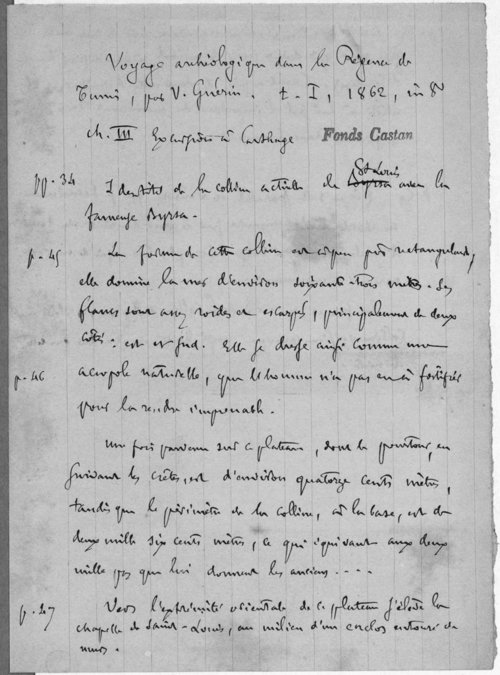 Voyage archéologique dans la Régence de
Tunis, par V. Guérin. t. I, 1862, in 8
ch. III Excursion à Carthage
Fonds Castan
St Louis
pp. 34 Identité de la colline actuelle de Byrsa avec la
fameuse Byrsa.
p. 45 La forme de cette colline est à peu près rectangulaire,
elle domine la mer d'environ soixante-trois mètres. Ses
flancs sont assez roides et escarpés, principalement de deux
côtés : est et sud. Elle se dresse ainsi comme une
p. 46 acropole naturelle, que l'homme n'a pas eu à fortifier
pour la rendre imprenable.
Une fois parvenu sur ce plateau, dont le pourtour, en
suivant les crêtes, est d'environ quatorze cents mètres,
tandis que le périmètre de la colline, à la base, est de
deux mille six cents mètres, ce qui équivaut aux deux
mille pas que lui donnent les anciens . . . .
p. 47 Vers l'extrémité orientale de ce plateau s'élève la
chapelle de Saint-Louis, au milieu d'un enclos entouré de
murs.